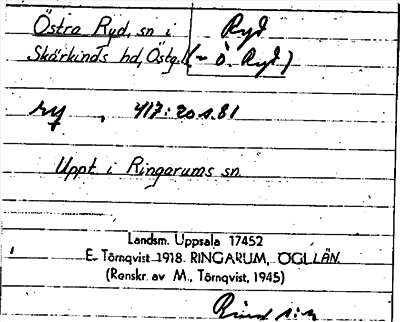 Östra Ryd, sn i
Skärkinds hd, Östg.
Ryd
(~ Ö. Ryd)
ry , 417: 20 s. 81
Uppt. i Ringarums sn.
Landsm. Uppsala 17452
E. Törnqvist 1918. RINGARUM, ÖGL LÄN.
(Renskr. av M. Törnqvist, 1945)